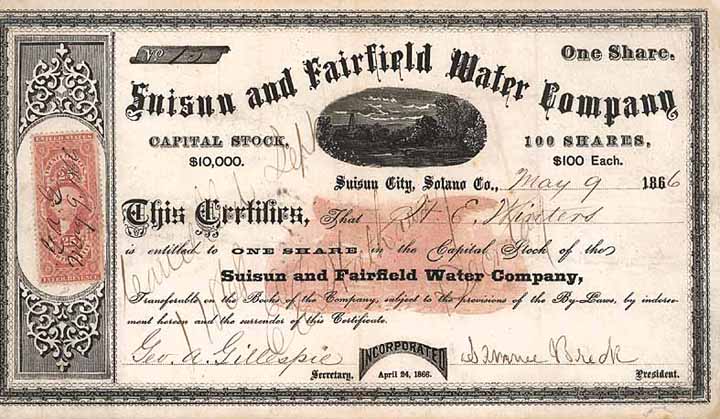 No 15
One Share.
Suisun and Fairfield Water Company
CAPITAL STOCK, 100 SHARES,
$10,000. $100 Each.
Suisun City, Solano Co., May 9 1866
This Certifies, That H. E. Winters
is entitled to ONE SHARE in the Capital Stock of the
Suisun and Fairfield Water Company,
Transferable on the Books of the Company, subject to the provisions of the By-Laws, by indorse-
ment hereon and the surrender of this Certificate.
Geo. A. Gillespie INCORPORATED Breck
Secretary. April 24, 1866. President.